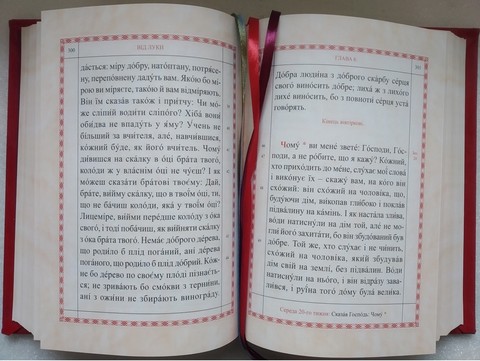 100
ВІД ЛУКИ
да́сться: мі́ру до́бру, нато́птану, потра́се-
ну, перепо́внену даду́ть вам. Яко́ю бо мі́-
рою ви мі́ряєте, тако́ю й вам відмі́ряють.
Він їм сказа́в тако́ж і при́тчу: Чи мо́-
же сліпи́й води́ти сліпо́го? Хіба́ вони́
оби́два не впаду́ть у я́му? У́чень не
бі́льший за вчи́теля, але́, навчи́вшися,
ко́жний бу́де, як його́ вчи́тель. Чому́
ди́вишся на ска́лку в о́ці бра́та твого́,
коло́ди ж у вла́снім о́ці не чу́єш? І як
мо́жеш сказа́ти бра́тові твоє́му: Дай,
бра́те, ви́йму ска́лку, що в твої́м о́ці, ти,
що не ба́чиш коло́ди, яка́ у твої́м о́ці?
Лицемі́ре, ви́йми пе́редше коло́ду з о́ка
свого́, і тоді́ поба́чиш, як ви́йняти ска́лку
з о́ка бра́та твого́. Нема́є до́брого де́рева,
що роди́ло б плід пога́ний, ані́ де́рева
пога́ного, що роди́ло б плід до́брий. Ко́ж-
не бо де́рево по своє́му плоді́ пізнає́ть-
ся; не зрива́ють бо смо́кви з терни́ни,
ані́ з ожи́ни не збира́ють виногра́ду.
ГЛАВА 6
101
До́бра люди́на з до́брого ска́рбу се́рця
свого́ вино́сить до́бре; лиха́ ж з лихо́го
лихе́ вино́сить, бо з повноти́ се́рця уста́
гово́рять.
Кінець вівторка.
Чому́ * ви мене́ звете́: Го́споди, Го́с-
поди, а не ро́бите, що я кажу́? Ко́жний,
хто прихо́дить до ме́не, слу́хає мої́ слова́
і вико́нує їх – скажу́ вам, на ко́го він
схо́жий: він схо́жий на чолові́ка, що,
буду́ючи дім, ви́копав глибо́ко і покла́в
підва́лину на ка́мінь. І як наста́ла зли́ва,
во́ди нати́снули на дім той, але́ не мо-
гли́ його́ захита́ти, бо він збудо́ваний був
до́бре. Той же, хто слу́хає і не чи́нить,
схо́жий на чолові́ка, яки́й збудува́в
дім свій на землі́, без підва́лин. Во́ди
нати́снули на ньо́го, і він відра́зу зава-
ли́вся, і руї́на того́ до́му була́ вели́ка.
Середа 25-го тижня: Сказав Господь: Чому *